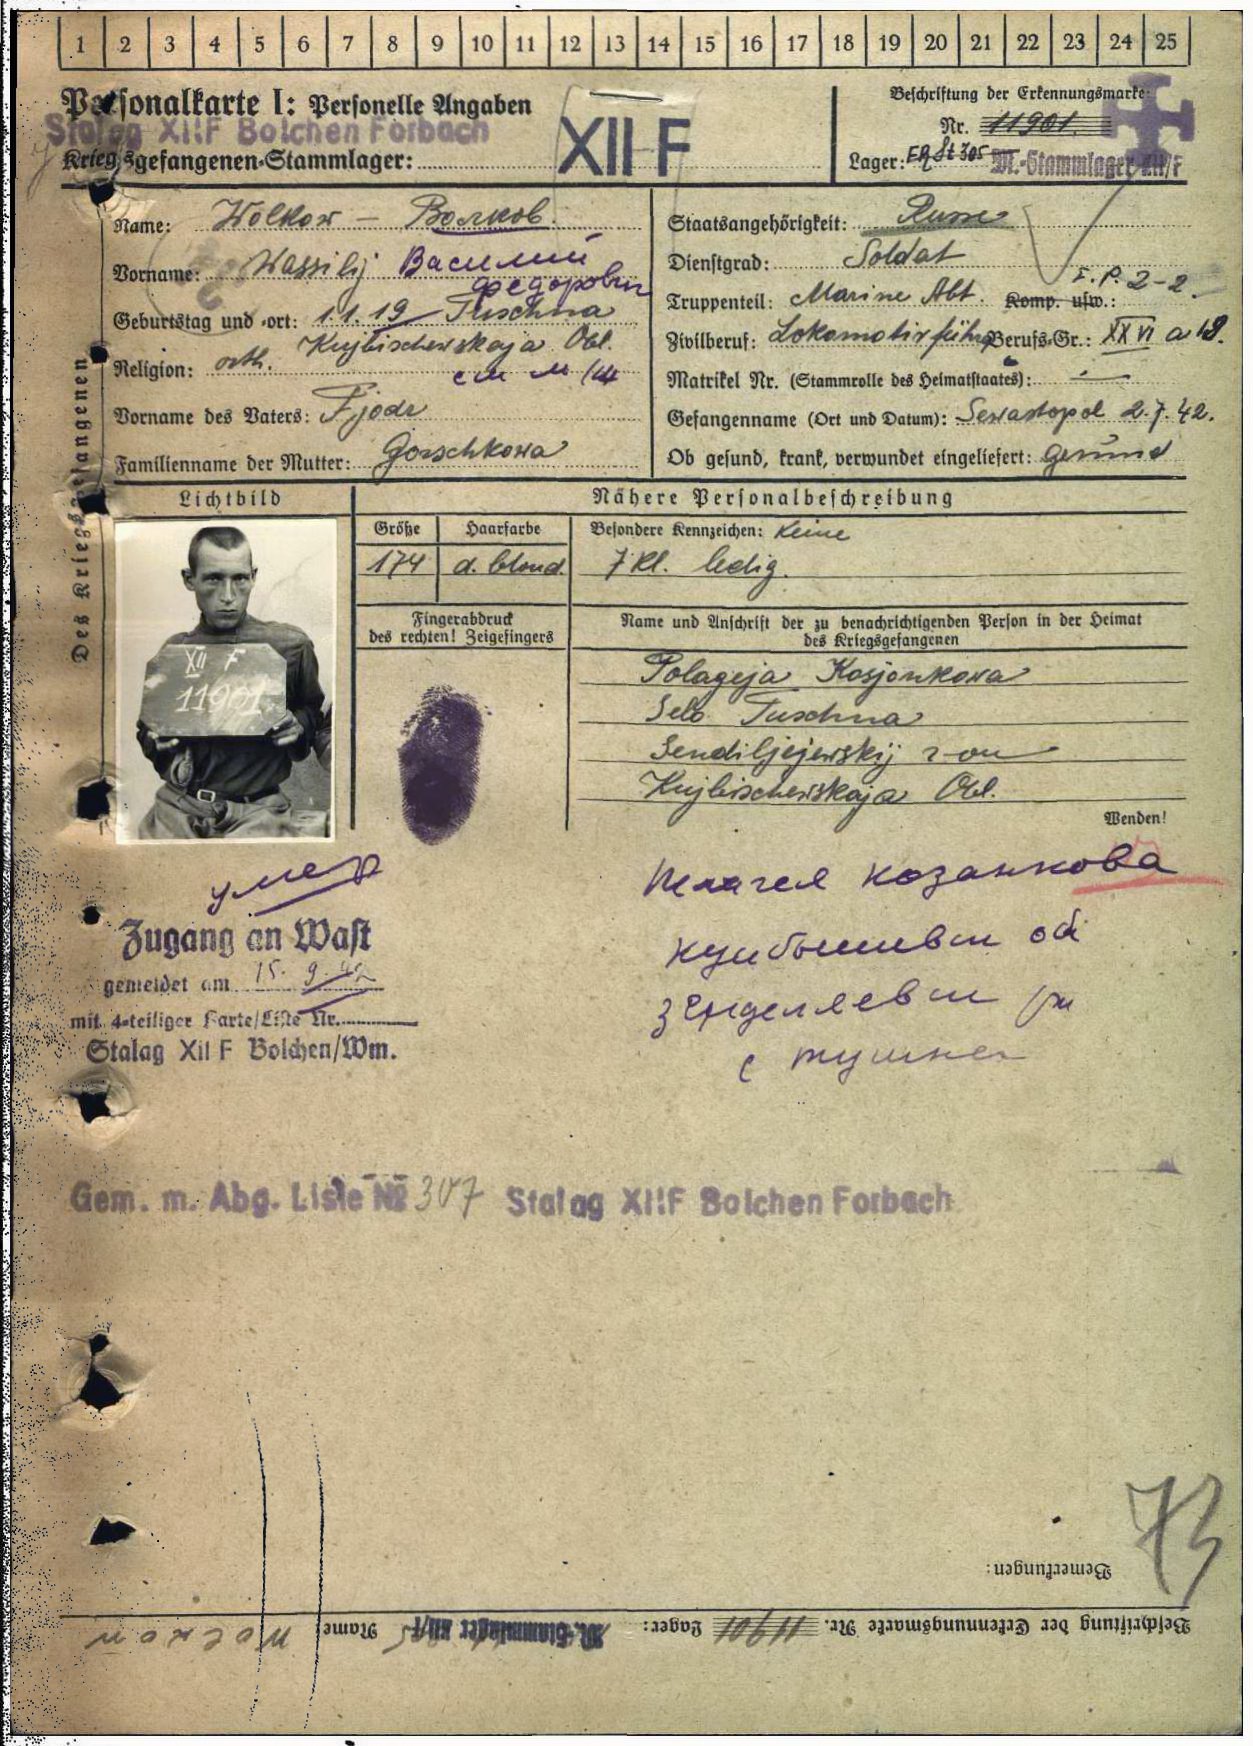 1 2 3 4 5 6 7 8 9 10 11 12 13 14 15 16 17 18 19 20 21 22 23 24 25
Personalkarte I: Personelle Angaben
Stalag XIIF Bolchen Forbach
Kriegsgefangenen-Stammlager:
XII F
Beschriftung der Erkennungsmarke:
Nr. 11901.
Lager: St 305 M.-Stammlager XII/F
Des Kriegsgefangenen
Name: Wolkow — Волков.
Vorname: Wassilij Василий
Федорович
Geburtstag und -ort: 1.1.19 Tuschna
Kujbischewskaja Obl.
Religion: orth.
Vorname des Vaters: Fjodr
Familienname der Mutter: Gorschkowa
Staatsangehörigkeit: Russe
Dienstgrad: Soldat
Truppenteil: Marine Abt. Komp. usw.: I.P. 2-2.
Zivilberuf: Lokomotivführer Berufs-Gr.: XXVI a 18.
Matrikel Nr. (Stammrolle des Heimatstaates): —
Gefangenname (Ort und Datum): Sewastopol 2.7.42.
Ob gesund, krank, verwundet eingeliefert: gesund
Lichtbild
Nähere Personalbeschreibung
Größe Haarfarbe Besondere Kennzeichen: Keine
174 d. blond. 7 Kl. ledig.
XII F
11901.
Fingerabdruck
des rechten! Zeigefingers
Name und Anschrift der zu benachrichtigenden Person in der Heimat
des Kriegsgefangenen
Polageja Kosjonkowa
Selo Tuschna
Sendiljejewskij
Kujbischewskaja Obl.
Wenden!
умер
Zugang an Wast
gemeldet am 15. 9. 42
mit 4-teiliger Karte/Liste Nr.
Stalag XII F Bolchen/Wm.
козанкова
куибышевск об
с тушна
Gem. m. Abg. Liste № 307 Stalag XIIF Bolchen Forbach
73
Bemerkungen:
Beschriftung der Erkennungsmarke Nr. 11901 Lager: M.-Stammlager XII/F Name: Wolkow